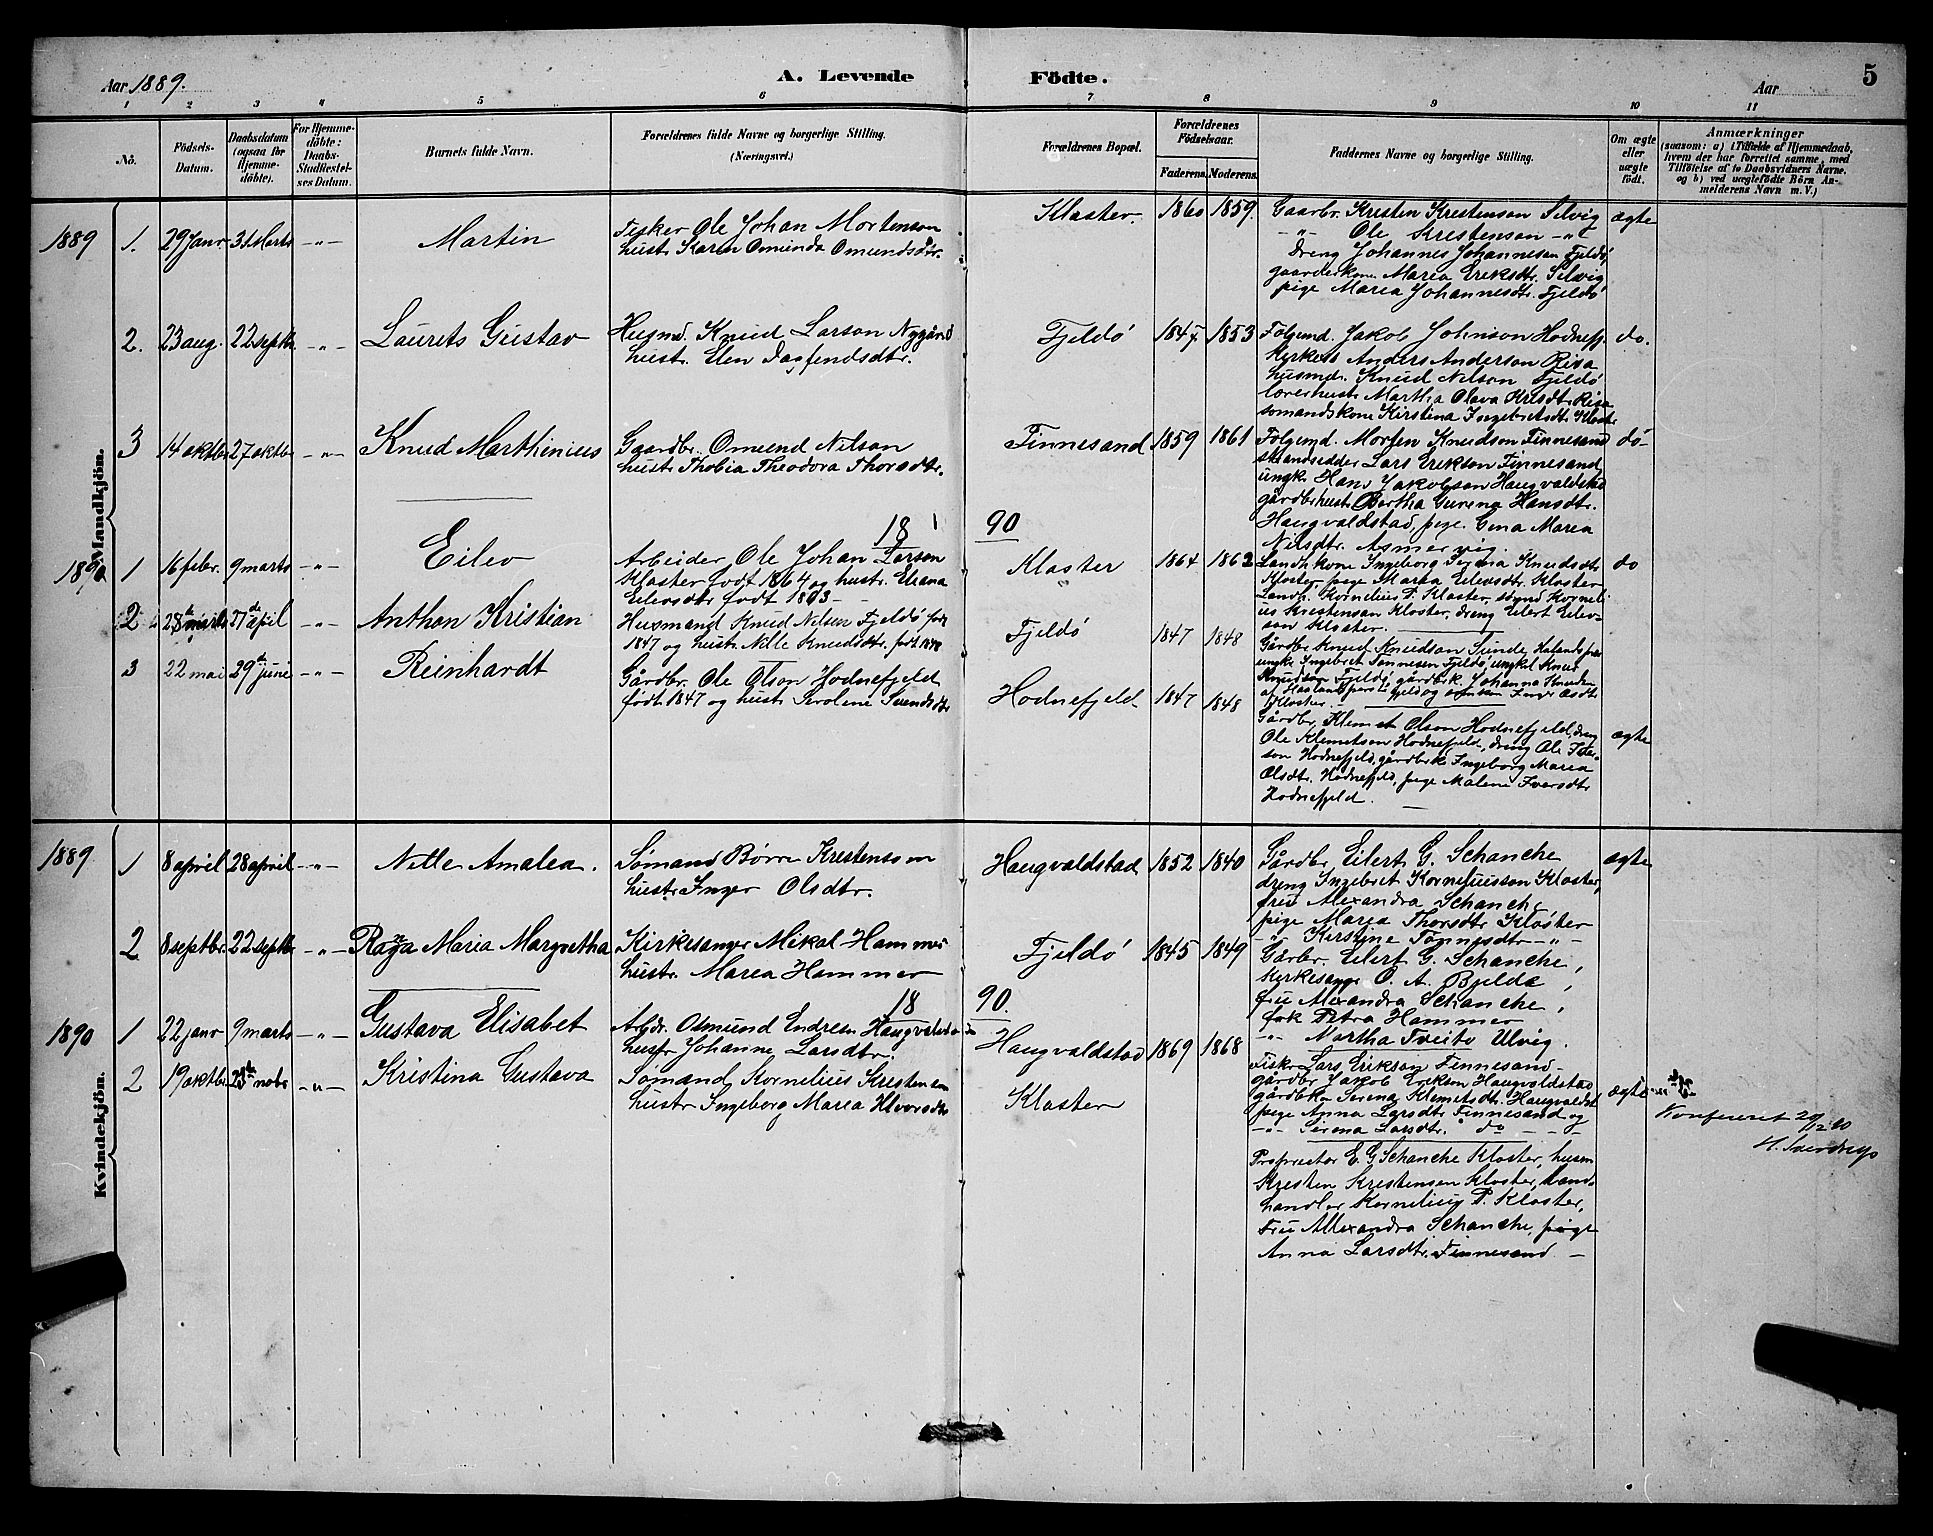 Aar 1889.
A. Levende Födte.
Aar
5
1 2 3 4 5 6 7 8 9 10 11
No.
Födsels-Datum.
Daabsdatum (ogsaa for Hjemme-döbte).
For Hjemme-döbte: Daabs-Stadfæstel-ses Datum.
Barnets fulde Navn.
Forældrenes fulde Navne og borgerlige Stilling.
(Næringsvei.)
Forældrenes Bopæl.
Forældrenes Födselsaar.
Faderens. Moderens.
Faddernes Navne og borgerlige Stilling.
Om ægte eller uægte födt.
Anmærkninger
(saasom: a) i Tilfælde af Hjemmedaab,
hvem der har forrettet samme, med
Tilföielse af to Daabsvidners Navne.
og b) ved uægtefödte Börn An-
melderens Navn m. V.)
Mandkjön.
1889 1. 29 Janr 31 Marts -"- Martin
Fisker Ole Johan Mortenson
hustr. Karen Osmunda Omundsdtr.
Klaster 1860 1859.
Gaarbr. Kresten Krestenson Selvig
-"- Ole Krestenson -"-
Dreng Johannes Johannesen Fjeldö,
gaarderkone Marea Ereksdtr. Selvig
pige Marea Johannesdtr. Fjeldö
ægte
2. 23 aug. 22 septbr -"- Laurets Gustav
Husmd. Knud Larson Nygård
hustr. Elen Dagfendsdtr.
Fjeldö 1847. 1853
Folgemd. Jakob Johnson Hodnefj.
Kerkes Anders Anderson Risa
husmd. Knud Nilson Fjeldö
lærerhustr. Martha Olava Krisdtr Risa
somandskone Kirstina Ingebretsdt. Kloster
do.
3 14 oktbr 27 oktbr -"- Knud Marthinius
Gaardbr. Omund Nilson
hustr. Thobia Theodora Thorsdtr.
Finnesand 1859 1861
Folgemd. Morten Knudson Finnesand
strandsidder Lars Erekson Finnesand,
ungk. Hans Jakobson Haugvaldstad
gårdbr.hustr. Bertha Gurena Hansdtr.
Haugvaldstad, pige. Gena Marea
Nilsdtr. Asmervig.
do-
18 90
1890 1 16 febr. 9 marts -"- Eilev
Arbeider Ole Johan Larson
Kloster født 1864 og hustr. Elena
Eilevsdtr født 1863 -
Klaster 1864 1862
Landh. kone Ingeborg Serina Knudsdtr
Kloster, pige Marea Eilevsdtr. Kloster
Landh. Kornelius P. Kloster, sömd Korneli-
us Krestensan Kloster, dreng Eilert Eilev-
son Kloster.
do
2 28 marts 27de april -"- Anthon Kristian
Husmand Knud Nilsen Fjeldö født
1847 og hustr. Nille Knudsdtr. født 1848
Fjeldö 1847 1848
Gårdbr Knud Knudson Sunde
ungk. Ingebret Tønnesen Fjeldö, ungkl Knud
Knudson Fjeldö, gårdbrk. Johanna
Kloster.
3 22 mai 29de juni -"- Reinhardt
Gårdbr. Ole Olson Hodnefjeld
født 1847 og hustr. Serolene Svendsdtr
Hodnefjeld 1847 1848
Gårdbr. Klemet Olson Hodnefjeld, dreng
Ole Klemetson Hodnefjeld, dreng Ole Iver-
son Hodnefjeld, gårdbrk. Ingeborg Marea
Olsdtr. Hodnefjeld, pige Malene Iversdtr
Hodnefjeld.
ægte
Kvindekjön.
1889 1 8 april 28 april -"- Nille Amalea.
Sömand Börre Krestensom
hustr. Inger Olsdtr.
Haugvaldstad 1852 1840
Gårdbr. Eilert G. Schanche
dreng Ingebret Korneliusson Kloster,
frue Alexandra Schanche
pige Marea Thorsdtr Klöster
-"- Kerstine Tönnesdtr -"-
ægte
2 8 septbr. 22 septbr -"- Ragna Maria Margretha
Kirkesanger Mikal Hammer
hustr. Marea Hammer
Fjeldö 1845 1849
Garbr. Eilert G. Schanche,
Kerkesanger O. A. Bjelde,
fru Alexandra Schanche,
frk Petra Hammer
-"- Martha Tveito Ulvig.
18 90.
1890 1 22 janr 9 marts -"- Gustava Elisabet
Arbdr. Osmund Endresen Haugvalstad
hustr Johanne Larsdtr.
Haugvaldstad 1869 1868
Fisker Lars Erikson Finnesand-
gårdbr Jakob Erikson Haugvaldstad
gårdbk. Serena Klemetsdtr. Haugvaldst
pige Anna Larsdtr Finnesand og
-"- Serena Larsdtr. do - - -
2 19 oktbr 23de nobr -"- Kristina Gustava
Sömand Kornelius Krestensen
hustr Ingeborg Marea Hlvorsdtr
Klaster
ægte
Proprietær E. G Schanche Kloster, husm
Kresten Krestensen Kloster, Land-
handler Kornelius P. Kloster,
Frue Allexandra Schanche, pige
Anna Larsdtr. Finnesand -
Konfereret 20/12 90